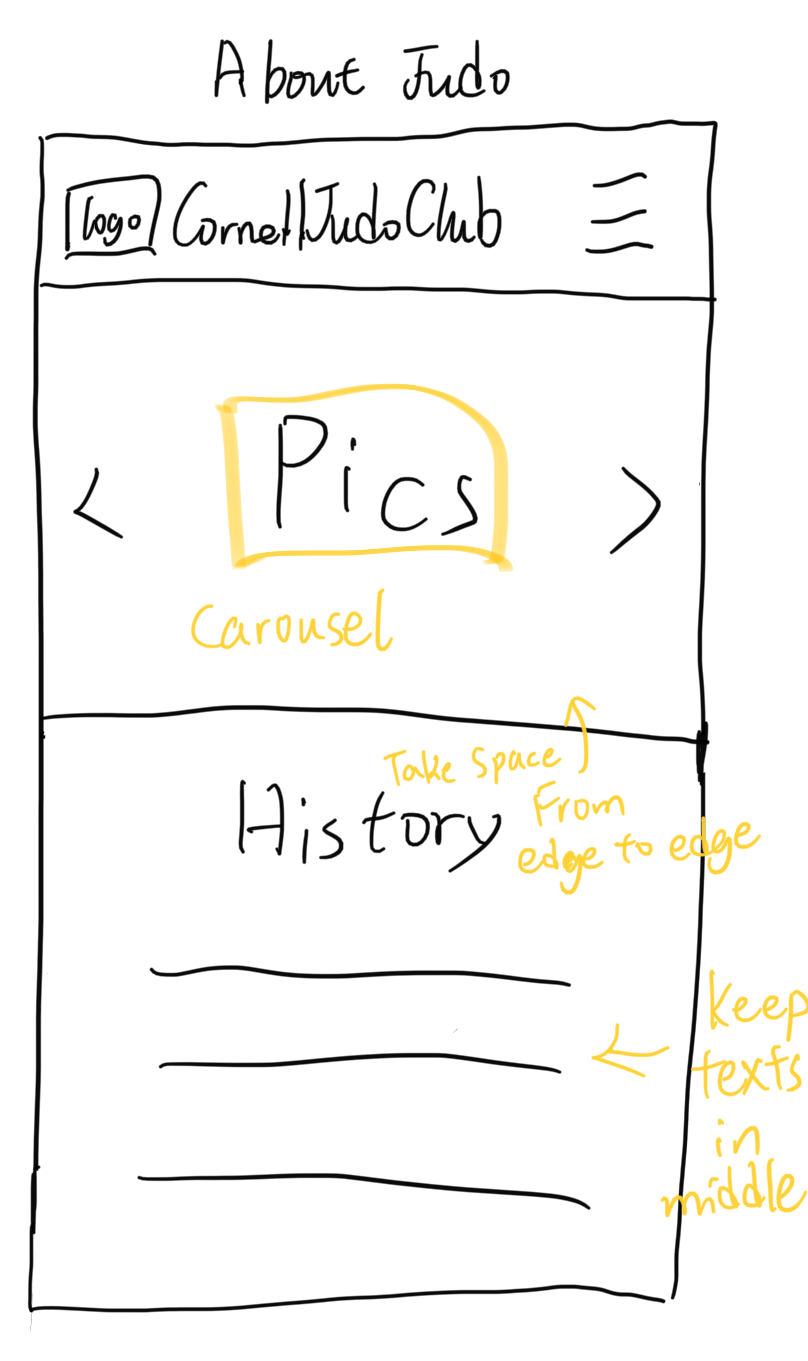 About Judo
logo Cornell Judo Club
Pics
Carousel
Take Space
From
edge to edge
History
keep
texts
in
middle